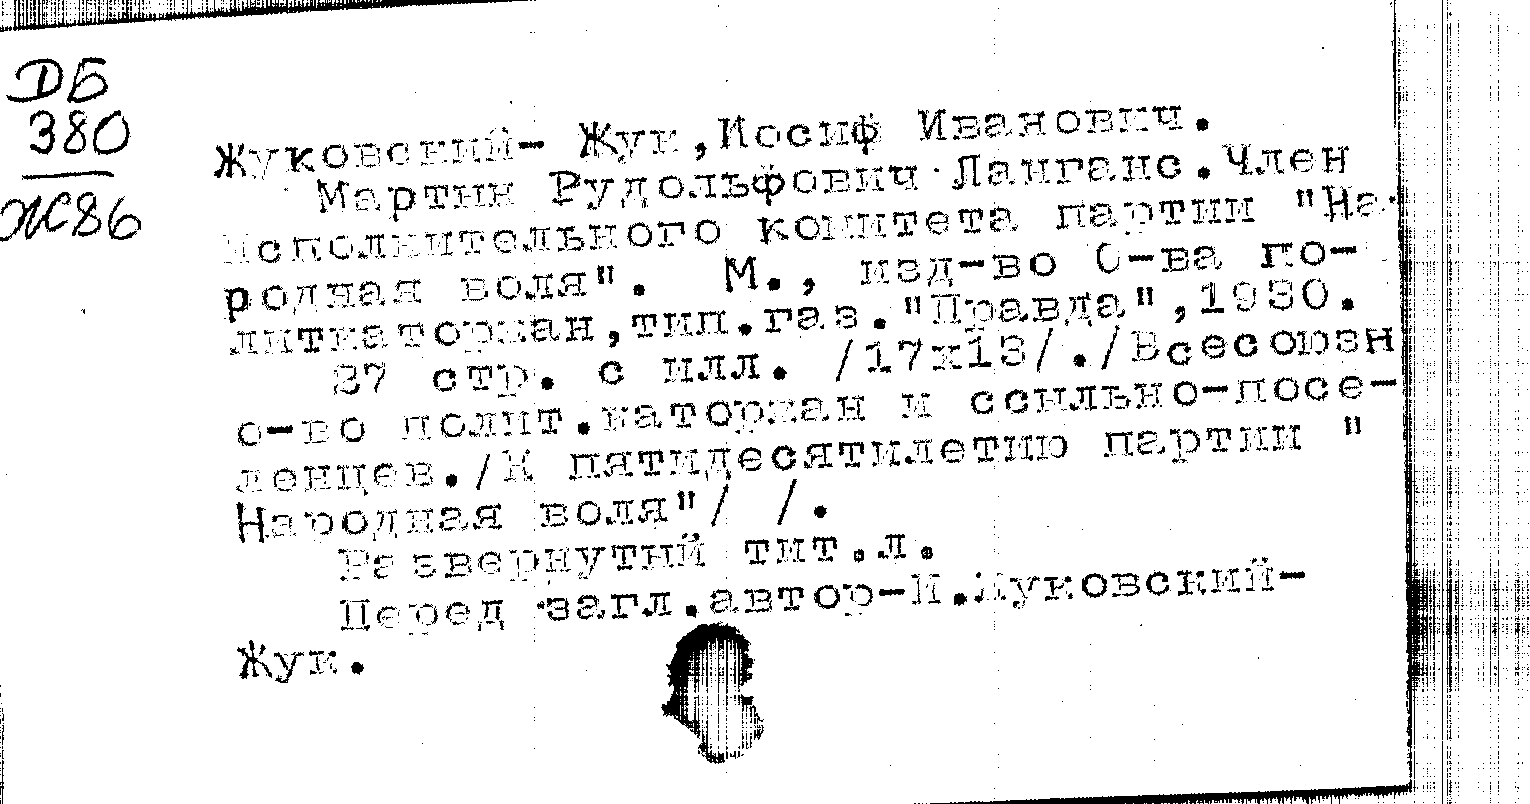 ДБ
380
Ж86
Жуковский- Жук,Иосиф Иванович.
Мартин Рудольфович Ланганс.Член
Исполнительного комитета партии "На-
родная воля". М., изд-во О-ва по-
литкаторжан,тип.газ."Правда",1930.
37 стр. с илл. /17х13/./Всесоюзн
о-во полит.каторжан и ссыльно-посе-
ленцев./К пятидесятилетию партии "
Народная воля"/ /.
Развернутый тит.л.
Перед загл.автор-И.Жуковский-
Жук.